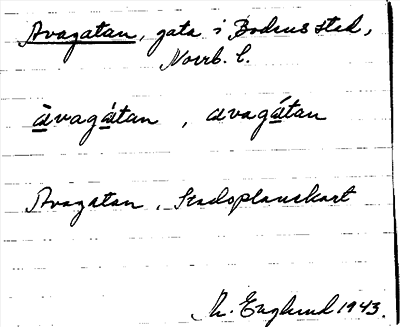 Avagatan, gata i Bodens stad,
Norrb. l.
àvagátan, avagátan
Avagatan. Stadsplanekart
M. Englund 1943.